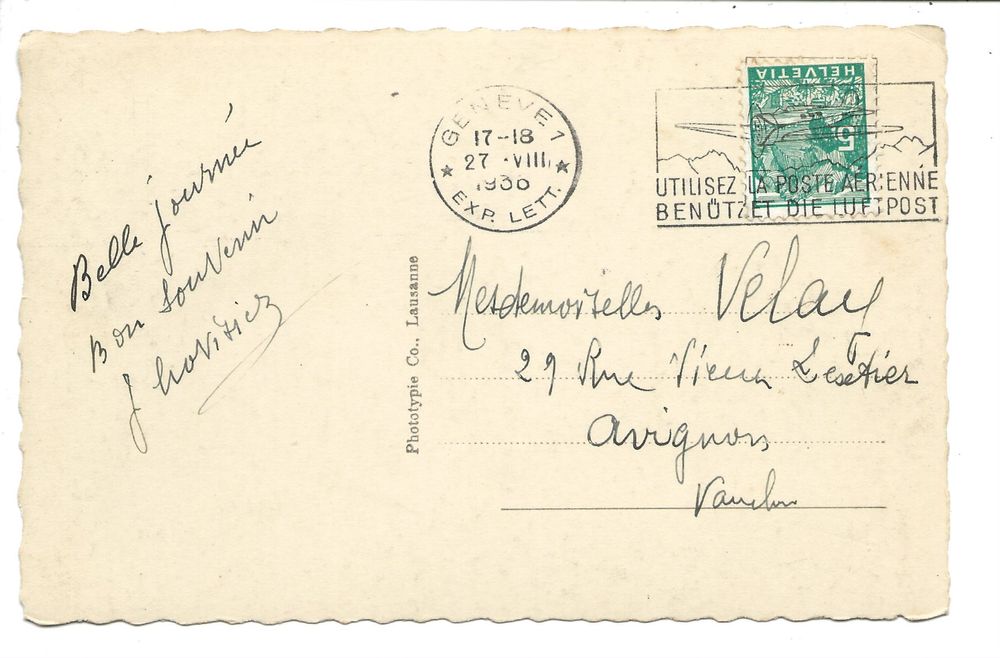 Belle journée
Bon souvenir
GENÈVE 1
17-18
27 .VIII.
1936
EXP. LETT.
HELVETIA
5
UTILISEZ LA POSTE AÉRIENNE
BENÜTZET DIE LUFTPOST
Phototypie Co., Lausanne
Mesdemoiselles Velay
29 Rue Vieux
Avignon